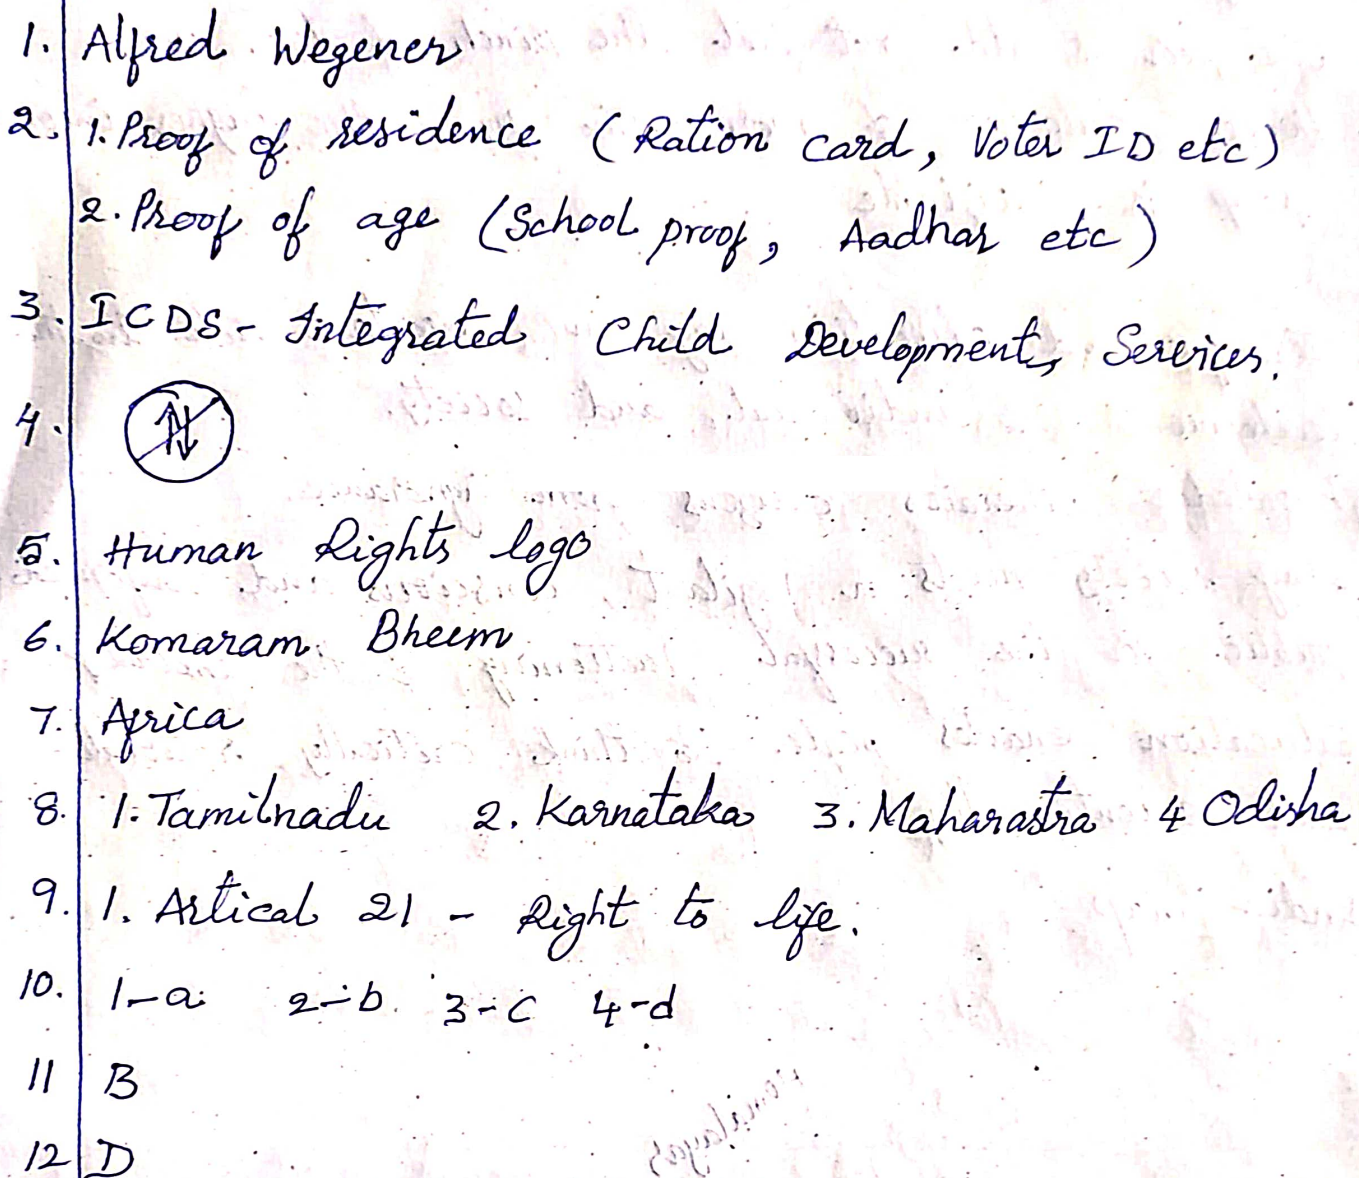 1. Alfred Wegener
2. 1. Proof of residence ( Ration card, Voter ID etc )
2. Proof of age ( School proof, Aadhar etc )
3. ICDS - Integrated Child Development, Services.
4.
5. Human Rights logo
6. Komaram Bheem
7. Africa
8. 1. Tamilnadu 2. Karnataka 3. Maharastra 4 Odisha
9. 1. Artical 21 - Right to life.
10. 1-a 2-b 3-c 4-d
11 B
12 D